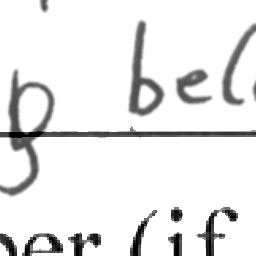 g bel
per (if